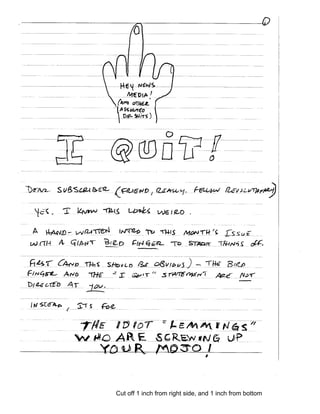 HEY NEWS
MEDIA!
(AND OTHER
ASSORTED
DIP. SHITS)
I QUIT!
DEAR SUBSCRIBER (FRIEND, REALLY. FELLOW REVOLUTIONARY)
YES. I KNOW THIS LOOKS WEIRD.
A HAND-WRITTEN INTRO TO THIS MONTH'S ISSUE
WITH A GIANT BIRD FINGER TO START THINGS OFF.
FIRST (AND THIS SHOULD BE OBVIOUS) - THE BIRD
FINGER AND THE "I QUIT" STATEMENT ARE NOT
DIRECTED AT YOU.
INSTEAD, ITS FOR
THE IDIOT "LEMMINGS"
WHO ARE SCREWING UP
YOUR MOJO!
Cut off 1 inch from right side, and 1 inch from bottom